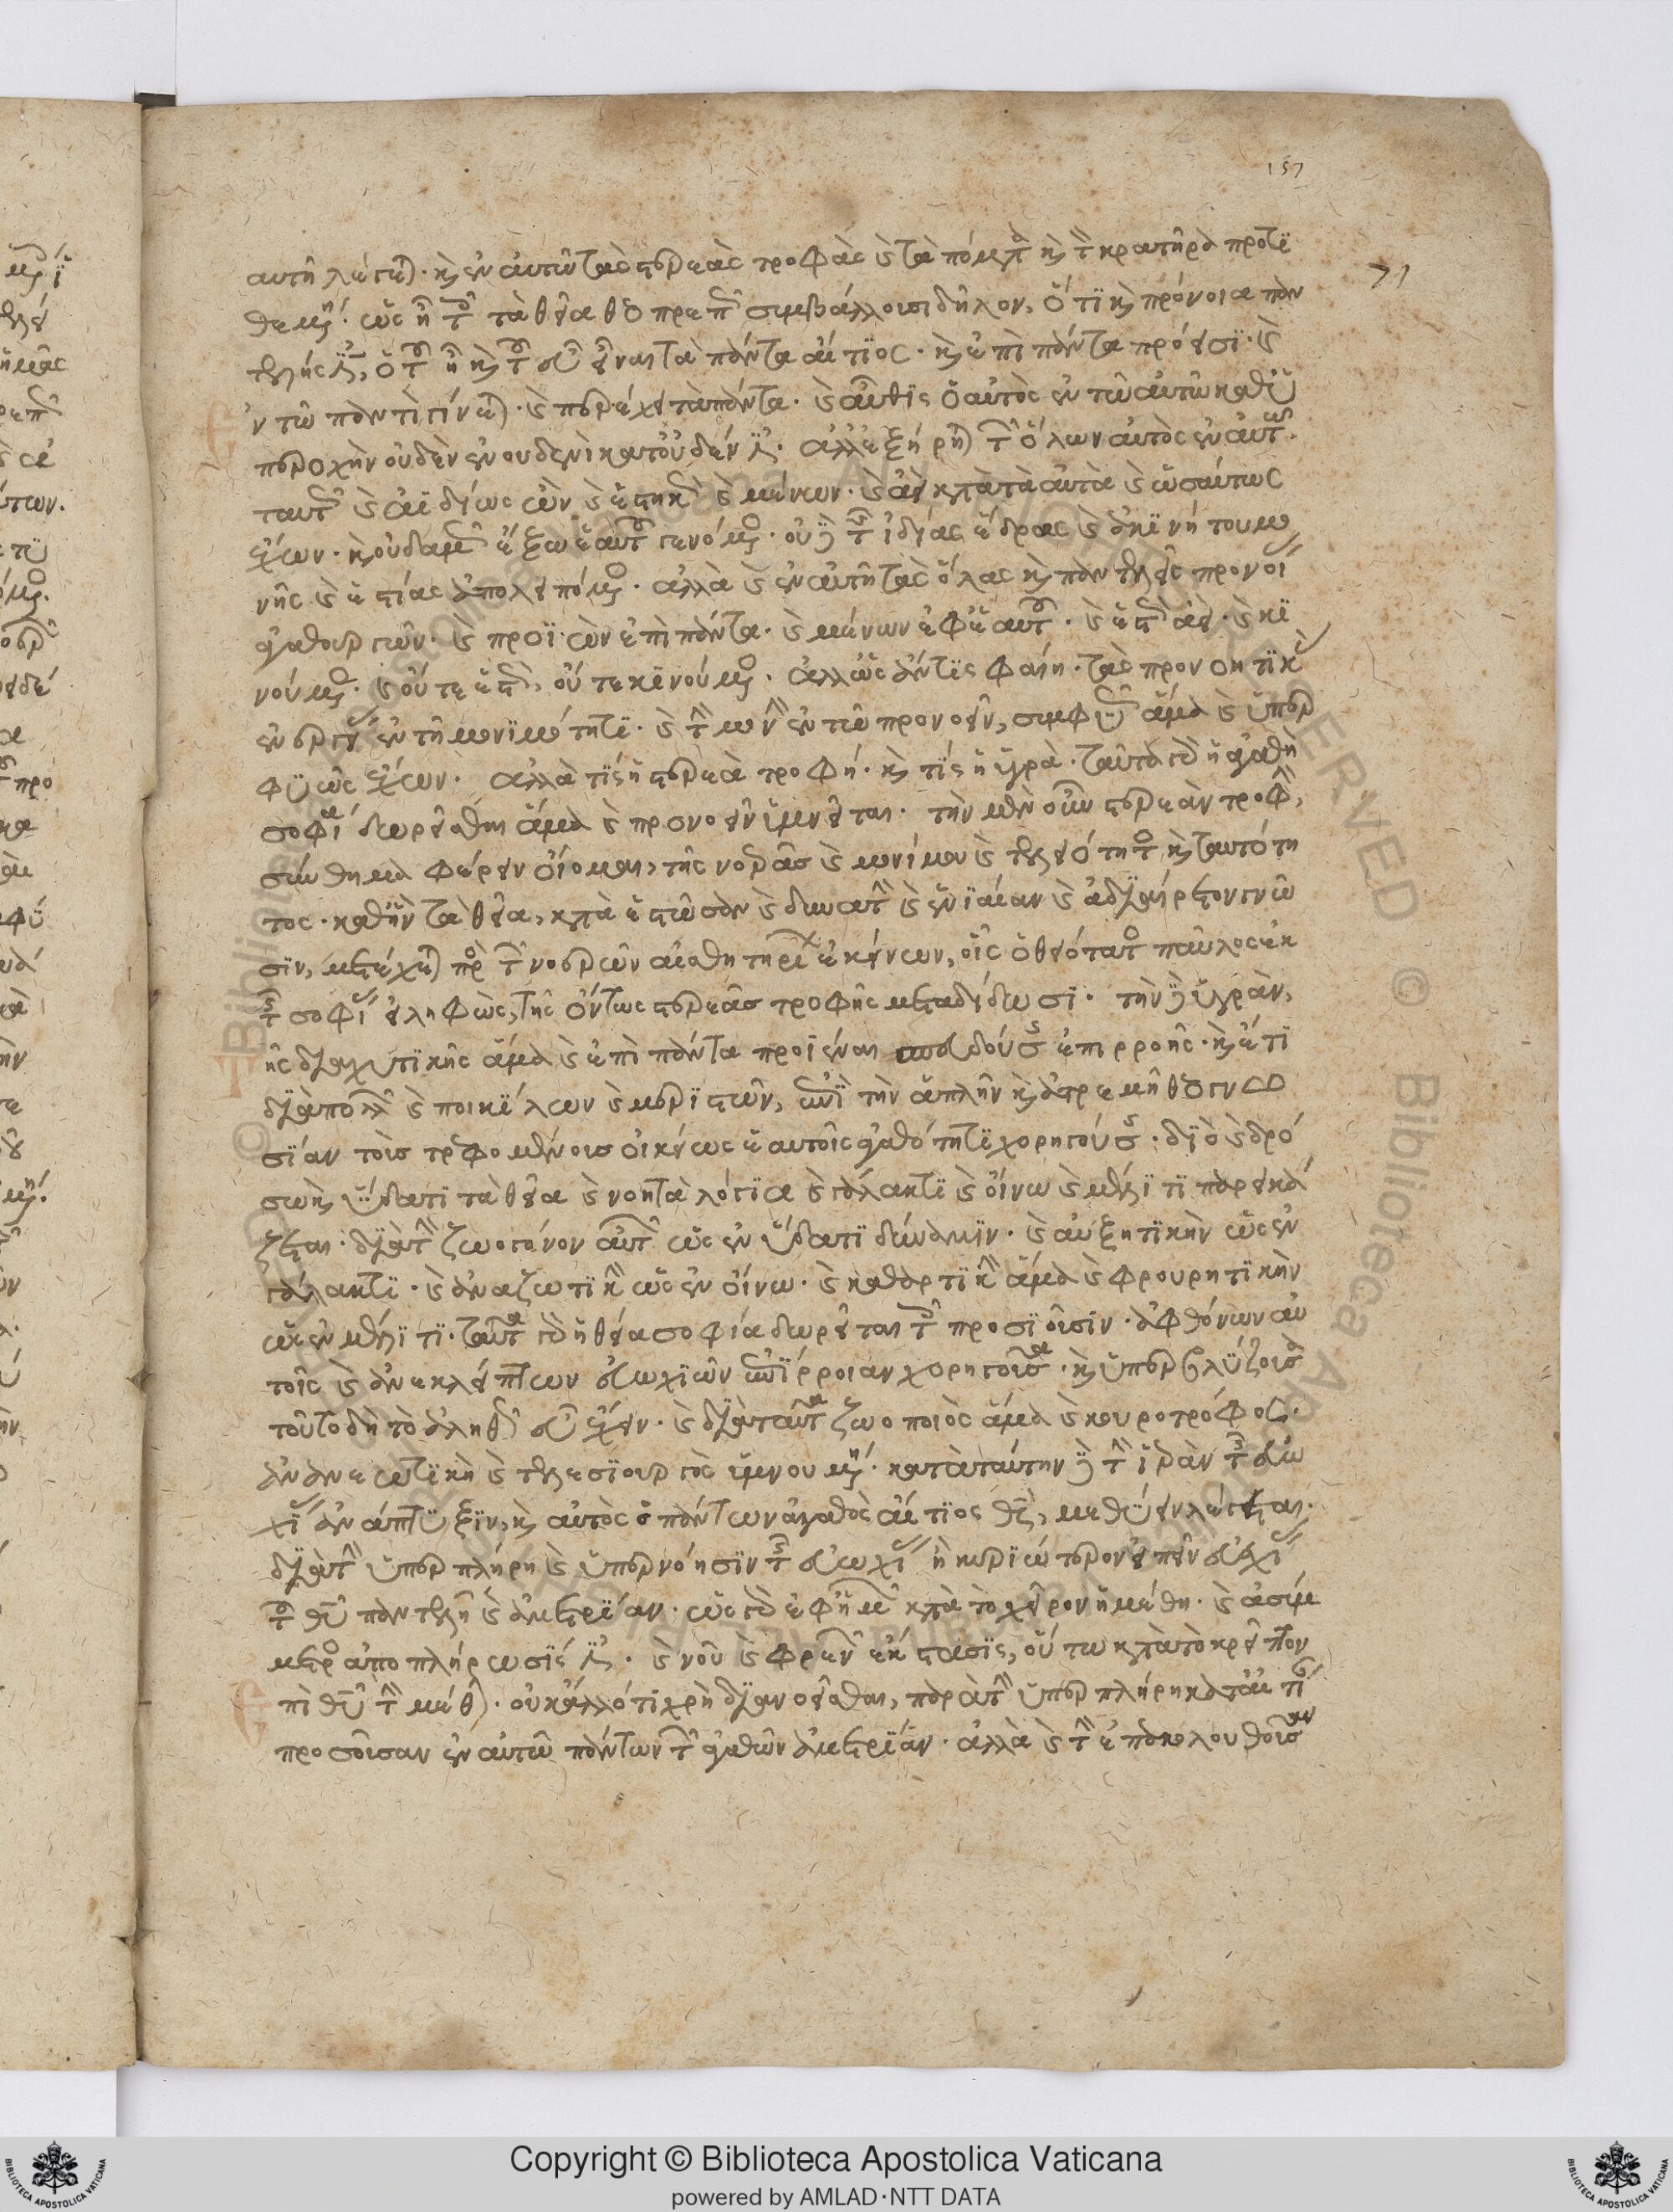 αὕτη λέγεται· καὶ ἐν αὐτῆ τὰς στερεὰς τροφὰς καὶ τὰ πόματα καὶ τὸν κρατῆρα προτι
θεμένη· ὡς εἶναι τοῖς τὰ θεῖα θεοπρεπῶς συμβάλλουσι δῆλον, ὅτι καὶ πρόνοια παν
τελής ἐστιν, ὁ τοῦ εἶναι καὶ τοῦ εὖ εἶναι τὰ πάντα αἴτιος· καὶ ἐπὶ πάντα πρόεισι· καὶ
ἐν τῶ παντὶ γίνεται· καὶ περιέχει τὰ πάντα· καὶ αὖθις ὁ αὐτὸς ἐν τῶ αὐτῶ καθ' ὑ
περοχὴν οὐδὲν ἐν οὐδενὶ κατ' οὐδέν ἐστιν· ἀλλ' ἐξήρηται τῶν ὅλων αὐτὸς ἐν ἑαυτῶ
ταυτῶς καὶ ἀϊδίως ὢν καὶ ἑστηκὼς καὶ μένων· καὶ ἀεὶ κατὰ τὰ αὐτὰ καὶ ὡσαύτως
ἔχων· καὶ οὐδαμῶς ἔξω ἑαυτοῦ γενόμενος· οὐδὲ τῆς ἰδίας ἕδρας καὶ ἀκινήτου μο
νῆς καὶ ἑστίας ἀπολειπόμενος· ἀλλὰ καὶ ἐν αὐτῆ τὰς ὅλας καὶ παντελεῖς προνοίας
ἀγαθουργῶν· καὶ προϊὼν ἐπὶ πάντα· καὶ μένων ἐφ' ἑαυτοῦ· καὶ ἑστὼς ἀεὶ· καὶ κι
νούμενος· καὶ οὔτε ἑστὼς, οὔτε κινούμενος· ἀλλ' ὡς ἄν τις φαίη· τὰς προνοητικὰς
ἐνεργείας ἐν τῆ μονιμότητι· καὶ τὴν μονὴν ἐν τῶ προνοεῖν, συμφυῶς ἅμα καὶ ὑπερ
φυῶς ἔχων· ἀλλὰ τίς ἡ στερεὰ τροφή· καὶ τίς ἡ ὑγρὰ· ταῦτα γὰρ ἡ ἀγαθὴ
σοφία δωρεῖσθαι ἅμα καὶ προνοεῖν ὑμνεῖται· τὴν μὲν οὖν στερεὰν τροφὴν,
σύνθημα φέρειν οἴομαι, τῆς νοερᾶς καὶ μονίμου καὶ τελειότητος καὶ ταυτότη
τος· καθ' ἣν τὰ θεῖα, κατὰ ἑστῶσαν καὶ δυνατὴν καὶ ἑνιαίαν καὶ ἀδιαίρετον γνῶ
σιν, μετέχεται πρὸς τῶν νοερῶν αἰσθητηρίων ἐκείνων, οἷς ὁ θειότατος παῦλος ἐκ
τῆς σοφίας εἰληφὼς, τῆς ὄντως στερεᾶς τροφῆς μεταδίδωσι· τὴν δὲ ὑγρὰν,
τῆς διαχυτικῆς ἅμα καὶ ἐπὶ πάντα προϊέναι σπευδούσης ἐπιρροῆς· καὶ ἔτι
διὰ πολλῶν καὶ ποικίλων καὶ μεριστῶν, ἐπὶ τὴν ἁπλῆν καὶ ἀτρεμῆ θεογνω
σίαν τοὺς τρεφομένους οἰκείως ἑαυτοῖς ἀγαθότητι χορηγούσης· διὸ καὶ δρό
σω καὶ ὕδατι τὰ θεῖα καὶ νοητὰ λόγια καὶ γάλακτι καὶ οἴνω καὶ μέλιτι παρεικά
ζεται· διὰ τὴν ζωογόνον αὐτῶν ὡς ἐν ὕδατι δύναμιν· καὶ αὐξητικὴν ὡς ἐν
γάλακτι· καὶ ἀναζωτικὴν ὡς ἐν οἴνω· καὶ καθαρτικὴν ἅμα καὶ φρουρητικὴν
ὡς ἐν μέλιτι· ταῦτα γὰρ ἡ θεία σοφία δωρεῖται τοῖς προσιοῦσιν· ἀφθόνων αὐ
τοῖς καὶ ἀνεκλείπτων εὐωχιῶν ἐπίρροιαν χορηγοῦσα· καὶ ὑπερβλύζουσα
τοῦτο δὴ τὸ ἀληθῶς εὖ ἔχειν· καὶ διὰ ταῦτα ζωοποιὸς ἅμα καὶ κουροτρόφος·
ἀνανεωτικὴ καὶ τελεσιουργὸς ὑμνουμένη· κατὰ ταύτην δὲ τὴν ἱερὰν τῆς εὐω
χίας ἀνάπτυξιν, καὶ αὐτὸς ὁ πάντων ἀγαθὸς αἴτιος θεὸς, μεθύειν λέγεται·
διὰ τὴν ὑπερπλήρη καὶ ὑπὲρ νόησιν τῆς εὐωχίας ἢ κυριώτερον εἰπεῖν εὐεξίας
τοῦ θεοῦ παντελῆ καὶ ἀμετρίαν· ὡς γὰρ ἐφ' ἡμῶν κατὰ τὸ χεῖρον ἡ μέθη· καὶ ἀσύμ
μετρος ἀποπλήρωσίς ἐστιν· καὶ νοῦ καὶ φρενῶν ἔκστασις, οὕτω κατὰ τὸ κρεῖττον
ἐπὶ θεοῦ τὴν μέθην· οὐκ ἄλλό τι χρὴ διανοεῖσθαι, παρὰ τὴν ὑπερπλήρη κατ' αἰτίαν
προοῦσαν ἐν αὐτῶ πάντων τῶν ἀγαθῶν ἀμετρίαν· ἀλλὰ καὶ τὴν ἐπακολουθοῦσαν